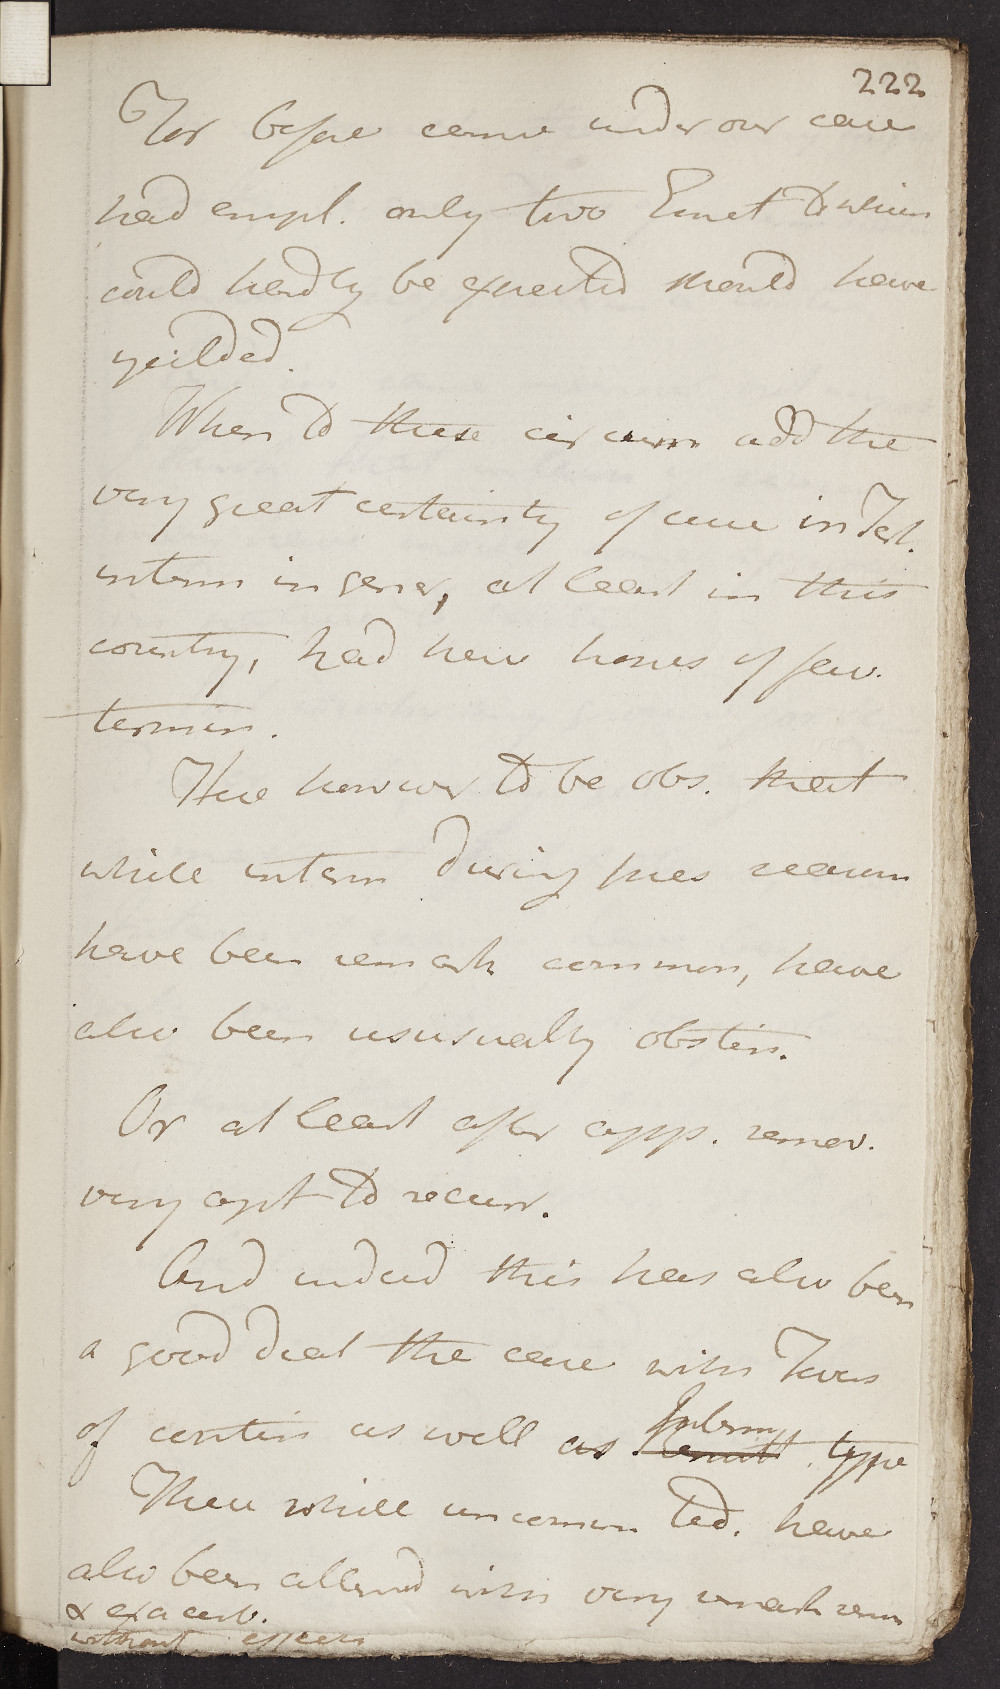 222
For before came under our care
had empl. only two Emet to which
could hardly be expected should have
yeilded.
When to these circum add the
very great certainty of cure in Tert.
interm in gener, at least in this
country, had here hopes of fav.
termin.
Here however to be obs. that
while interm during pres season
have been remark common, have
also been ususually obstin.
Or at least after app. remov.
very apt to recurr.
And indeed this has also been
a good deal the case with Fevers
of contin as well as Interm type
These while uncommon ted. have
also been attend with very remark rem
& exacerb.
without effects